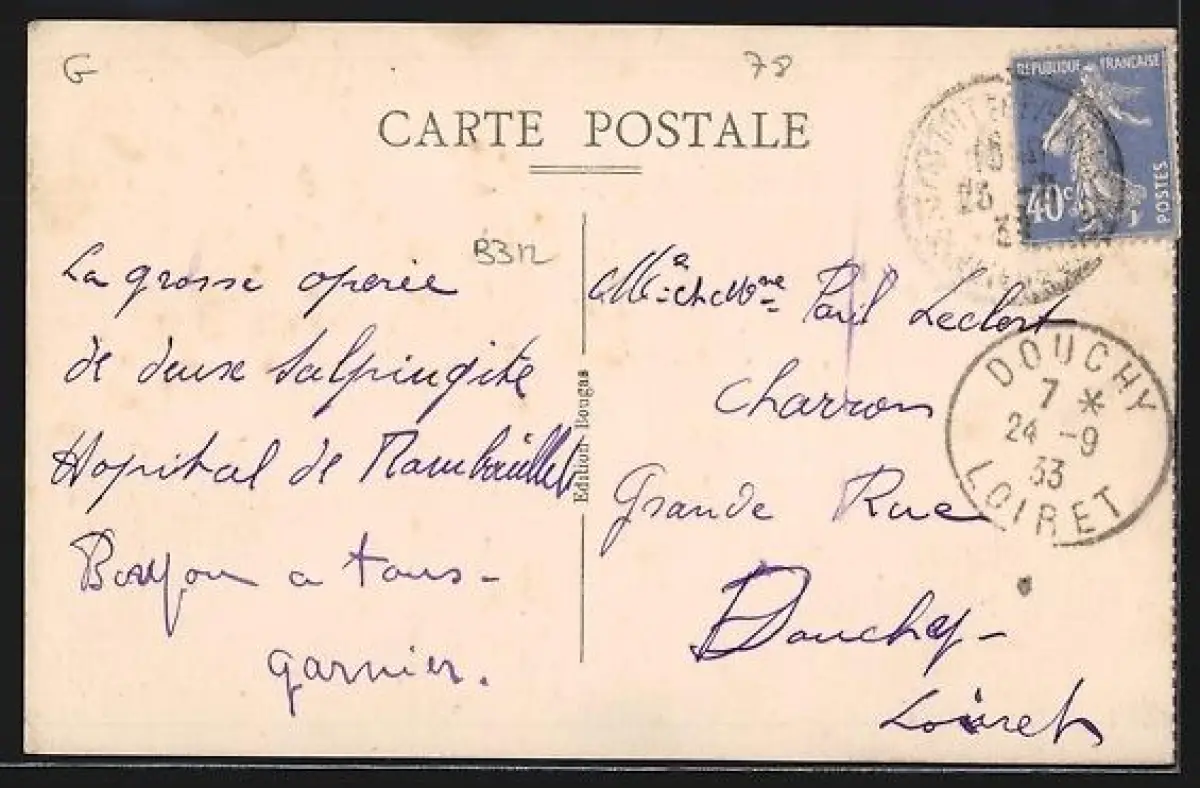 G
78
CARTE POSTALE
RÉPUBLIQUE FRANÇAISE
40c
POSTES
B312
La grosse operée
de deuse Salpingite
Hopital de Rambouillet
Bonjour a tous -
garnier.
Edition Bougas
Paul Leclert
Charron
grande Rue
Douchy -
Loiret
DOUCHY
7 *
24 -9
33
LOIRET